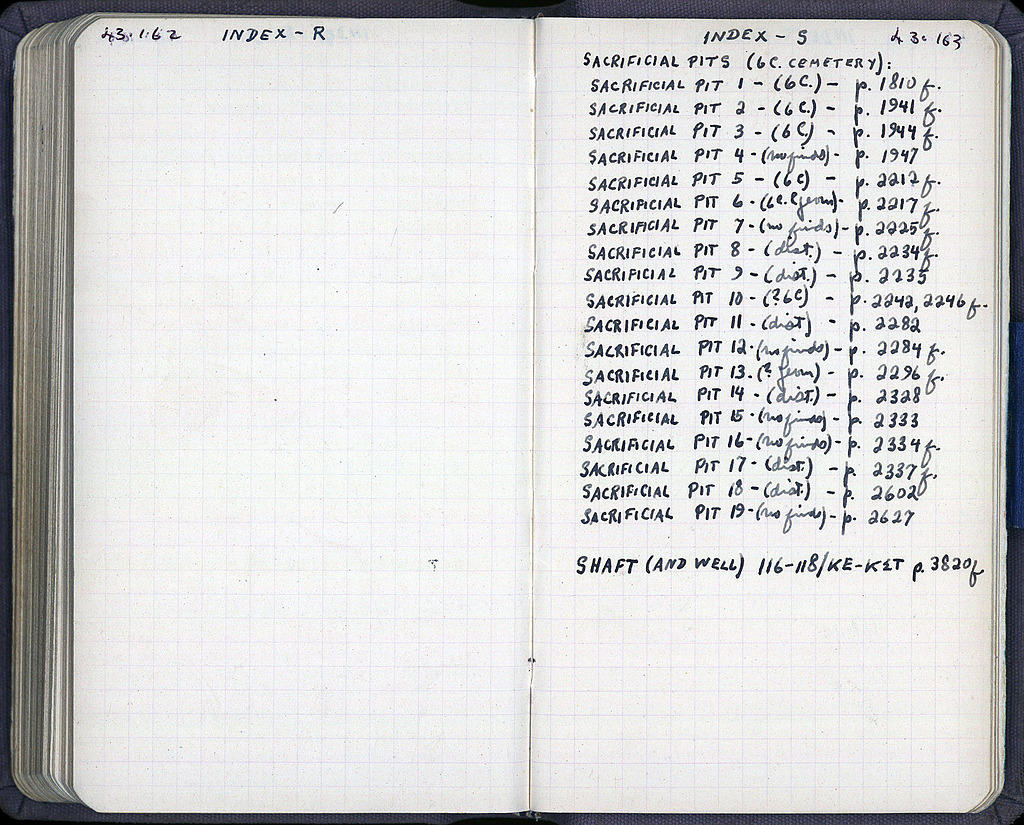 43.162 INDEX - R
INDEX - S 43.163
SACRIFICIAL PITS (6C. CEMETERY):
SACRIFICIAL PIT 1 - (6C.) - p. 1810 f.
SACRIFICIAL PIT 2 - (6C.) - p. 1941 f.
SACRIFICIAL PIT 3 - (6C) - p. 1944 f.
SACRIFICIAL PIT 4 - (no finds) - p. 1947
SACRIFICIAL PIT 5 - (6C) - p. 2212 f.
SACRIFICIAL PIT 6 - (6C. & geom) - p. 2217 f.
SACRIFICIAL PIT 7 - (no finds) - p. 2225 f.
SACRIFICIAL PIT 8 - (dist.) - p. 2234 f.
SACRIFICIAL PIT 9 - (dist.) - p. 2235
SACRIFICIAL PIT 10 - (?6C) - p. 2242, 2246 f.
SACRIFICIAL PIT 11 - (dist) - p. 2282
SACRIFICIAL PIT 12 - (no finds) - p. 2284 f.
SACRIFICIAL PIT 13 - (? geom) - p. 2296 f.
SACRIFICIAL PIT 14 - (dist.) - p. 2328
SACRIFICIAL PIT 15 - (no finds) - p. 2333
SACRIFICIAL PIT 16 - (no finds) - p. 2334 f.
SACRIFICIAL PIT 17 - (dist.) - p. 2337 f.
SACRIFICIAL PIT 18 - (dist.) - p. 2602
SACRIFICIAL PIT 19 - (no finds) - p. 2627
SHAFT (AND WELL) 116-118/KE-KST p. 3820 f